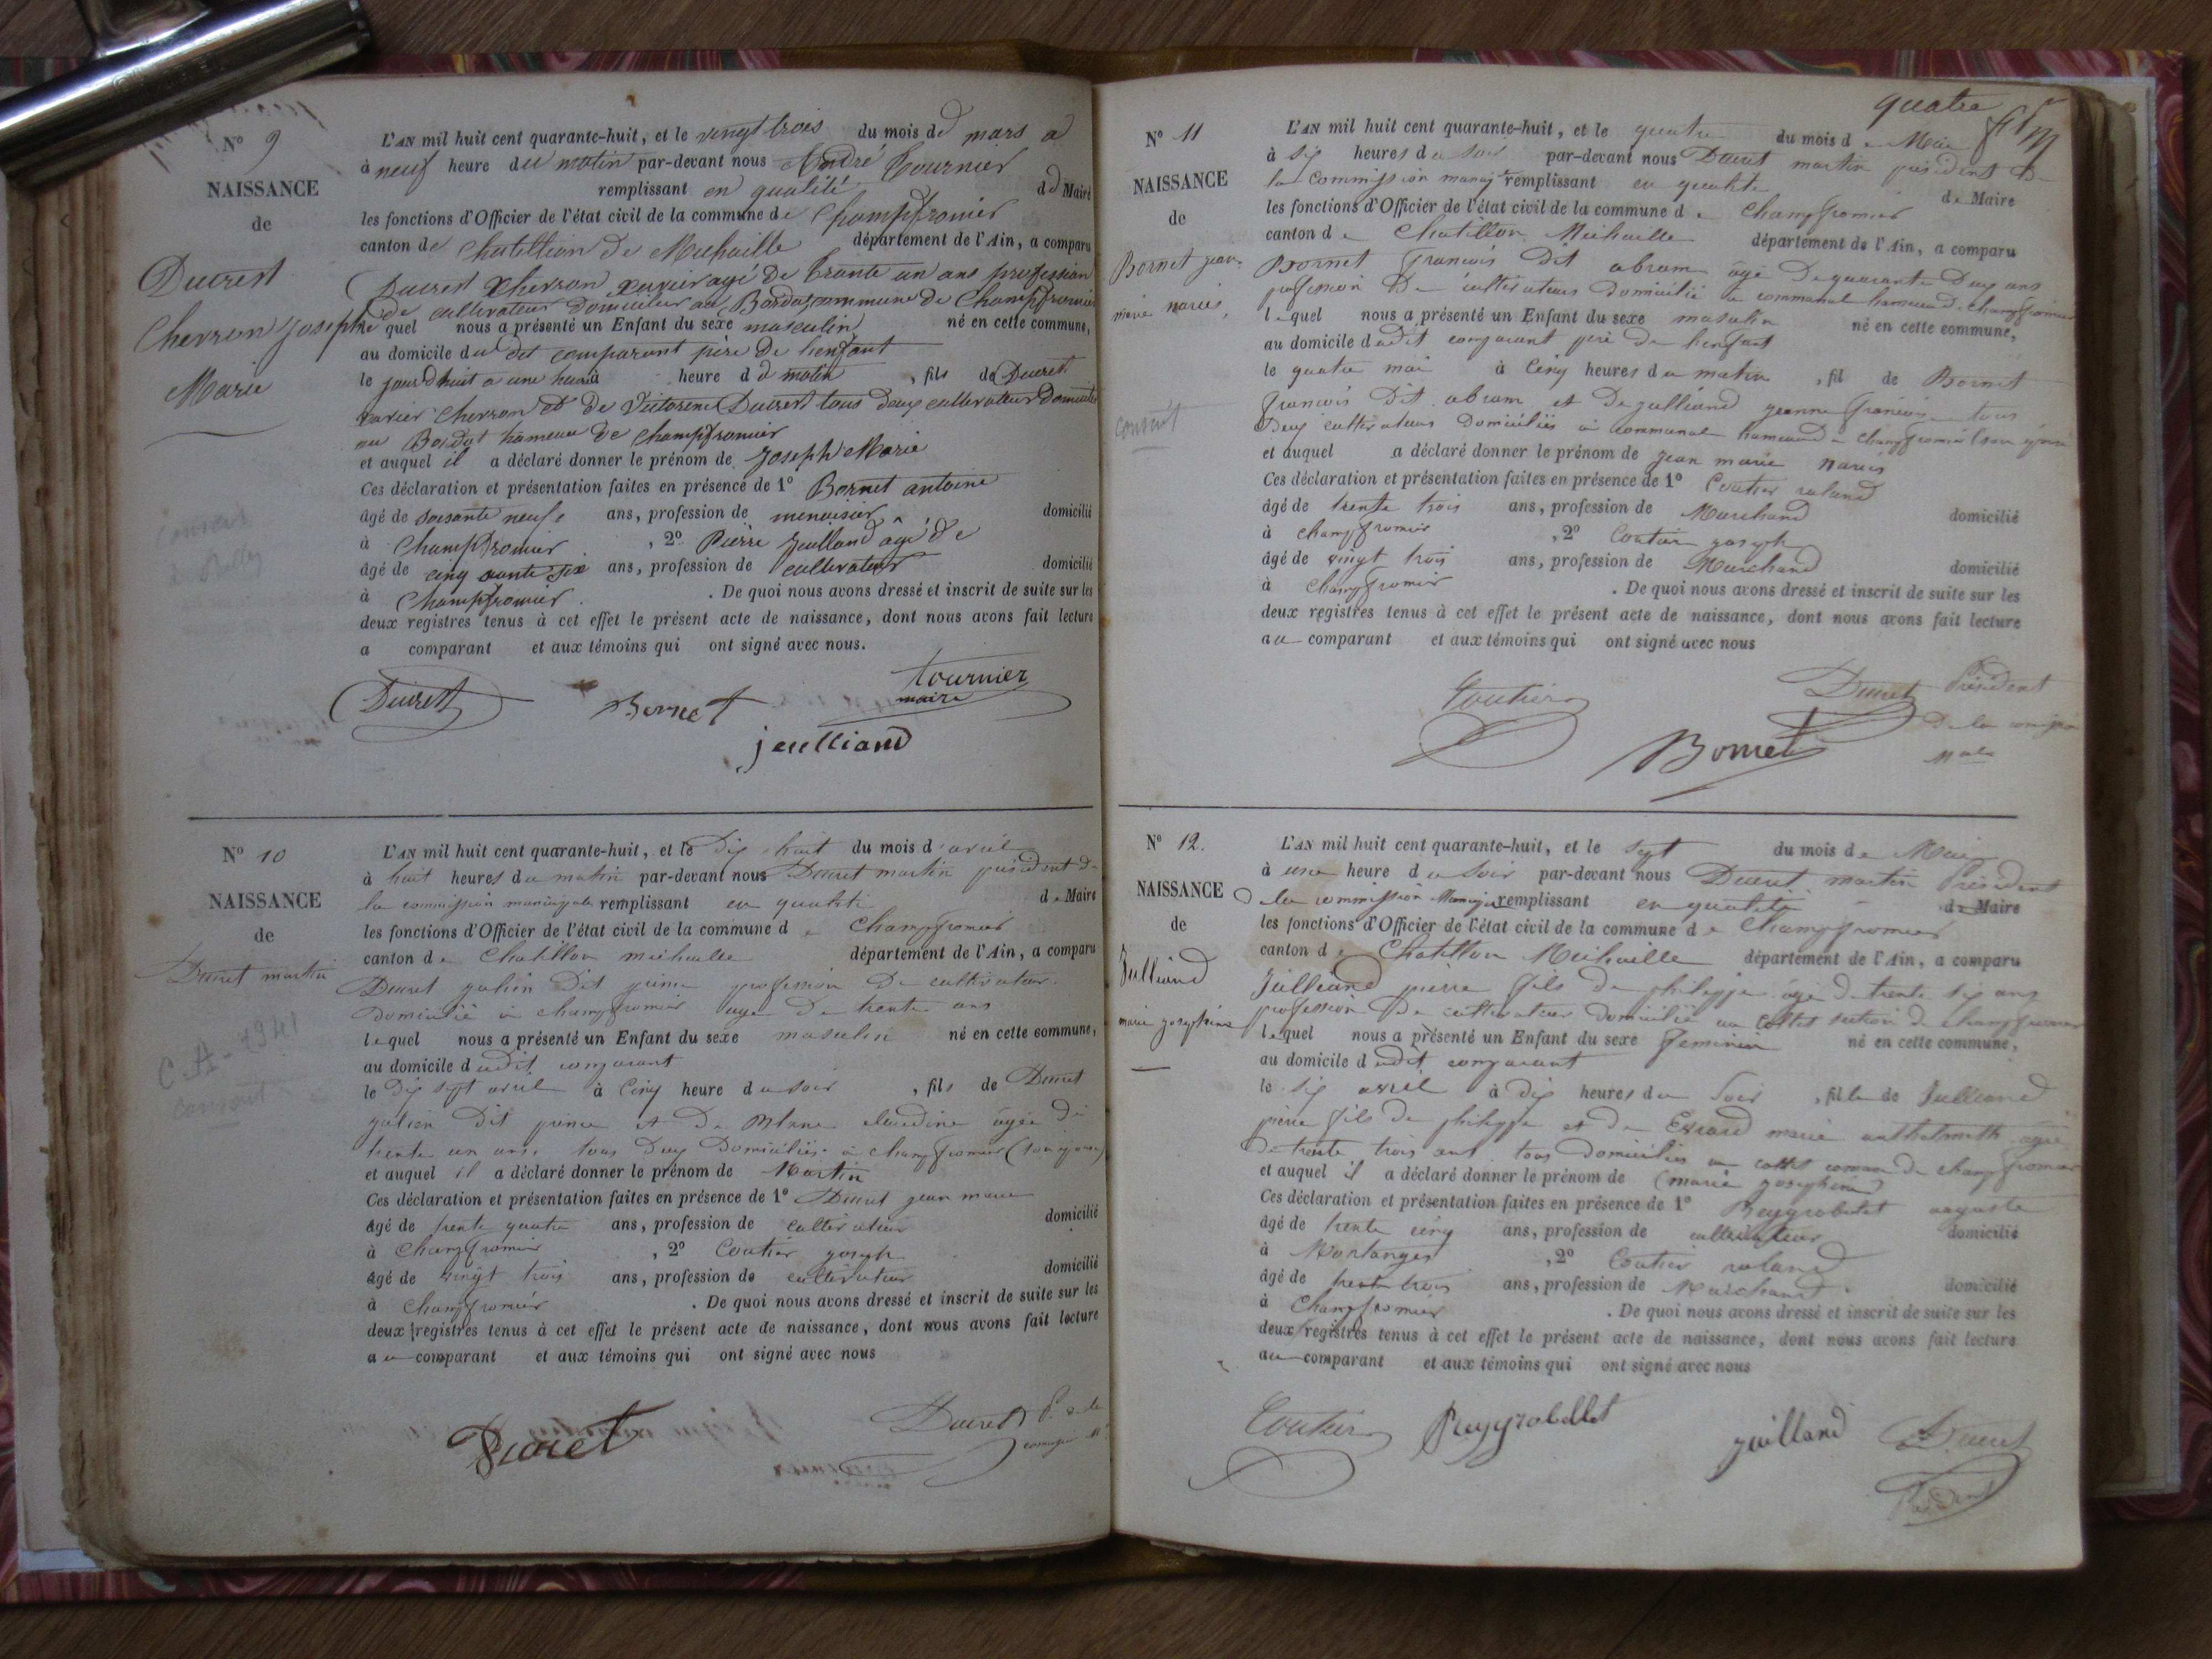 N° 9
NAISSANCE
de
Ducrest
Cherron Josephe
Marie
L'AN mil huit cent quarante-huit, et le vingt trois du mois de mars a
à neuf heure du matin par-devant nous André Tournier
remplissant en qualité de Maire
les fonctions d'Officier de l'état civil de la commune de Champfromier
canton de Chatillion de Michaille département de l'Ain, a comparu
Ducrest Cherron xavier agé de trante un ans profession
de cultivateur domicilier au Bordaz commune de Champfromier
le quel nous a présenté un Enfant du sexe masculin né en cette commune,
au domicile du dit comparant père de lenfant
le jourdhuit a une heure heure du matin, fils de Ducret
xavier Cherron et de Victorine Ducrest tous deux cultivateur domicilier
au Bordat hameau de Champfromier
et auquel il a déclaré donner le prénom de Joseph Marie
Ces déclaration et présentation faites en présence de 1° Bornet antoine
âgé de soisante neufe ans, profession de menuisier domicilié
à Champfromier, 2° Pierre Juilland âgé de
âgé de cinq uante six ans, profession de cultivateur domicilié
à Champfromier. De quoi nous avons dressé et inscrit de suite sur les
deux registres tenus à cet effet le présent acte de naissance, dont nous avons fait lecture
a comparant et aux témoins qui ont signé avec nous.
Ducrest Bornet Tournier
maire
juilliand
N° 10
NAISSANCE
de
Ducret martin
C.A - 1941
consent
L'AN mil huit cent quarante-huit, et le Dix huit du mois d'avril
à huit heures du matin par-devant nous Ducret martin président de
la commission municipale remplissant en qualité de Maire
les fonctions d'Officier de l'état civil de la commune de Champfromier
canton de Chatillon michaille département de l'Ain, a comparu
Ducret julien Dit prince profession De cultivateur
Domicilié à champfromier age De trente ans
lequel nous a présenté un Enfant du sexe masculin né en cette commune,
au domicile dudit comparant
le Dix sept avril à Cinq heure du soir, fils de Ducret
julien Dit prince et De claudine âgée de
trente un ans, tous Deux Domiciliés à champfromier
et auquel il a déclaré donner le prénom de Martin
Ces déclaration et présentation faites en présence de 1° Ducret jean marie
âgé de trente quatre ans, profession de cultivateur domicilié
à Champfromier, 2° Coutier joseph
âgé de vingt trois ans, profession de cultivateur domicilié
à Champfromier. De quoi nous avons dressé et inscrit de suite sur les
deux registres tenus à cet effet le présent acte de naissance, dont nous avons fait lecture
au comparant et aux témoins qui ont signé avec nous
Ducret Ducret
quatre
N° 11
NAISSANCE
de
Bornet jean
marie narcis
consent
L'AN mil huit cent quarante-huit, et le quatre du mois de Mai
à six heures du soir par-devant nous Ducret martin président De
la Commission remplissant en qualité de Maire
les fonctions d'Officier de l'état civil de la commune de Champfromier
canton de Chatillon Michaille département de l'Ain, a comparu
Bornet françois Dit abram âgé De quarante Deux ans
profession De cultivateur Domicilié a communal hameau de champfromier
lequel nous a présenté un Enfant du sexe masculin né en cette commune,
au domicile dudit comparant père De lenfant
le quatre mai à Cinq heures du matin, fil de Bornet
françois Dit abram et De julliand jeanne françoise tous
Deux cultivateurs Domiciliés à communal hameau de champfromier
et auquel a déclaré donner le prénom de jean marie narcis
Ces déclaration et présentation faites en présence de 1° Coutier roland
âgé de trente trois ans, profession de Marchand domicilié
à champfromier, 2° Coutier joseph
âgé de vingt trois ans, profession de Marchand domicilié
à Champfromier. De quoi nous avons dressé et inscrit de suite sur les
deux registres tenus à cet effet le présent acte de naissance, dont nous avons fait lecture
au comparant et aux témoins qui ont signé avec nous
Coutier Ducret Président
De la
Bornet
N° 12.
NAISSANCE
de
Julliand
marie josephine
L'AN mil huit cent quarante-huit, et le sept du mois de Mai
à une heure du soir par-devant nous Ducret martin Président
De la commission remplissant en qualité de Maire
les fonctions d'Officier de l'état civil de la commune de Champfromier
canton de Chatillon Michaille département de l'Ain, a comparu
Julliand pierre fils De philippe âgé De trente six ans
profession De cultivateur Domicilié au collet section de champfromier
lequel nous a présenté un Enfant du sexe feminin né en cette commune,
au domicile dudit comparant
le six avril à dix heures du soir, fille de Julliand
pierre fils De philippe et De Evrard marie âgée
De trente trois ans tous domiciliés au collet comune de champfromier
et auquel il a déclaré donner le prénom de (marie josephine)
Ces déclaration et présentation faites en présence de 1° Reygrobellet auguste
âgé de trente cinq ans, profession de cultivateur domicilié
à Montanges, 2° Coutier roland
âgé de trente trois ans, profession de Marchand domicilié
à Champfromier. De quoi nous avons dressé et inscrit de suite sur les
deux registres tenus à cet effet le présent acte de naissance, dont nous avons fait lecture
au comparant et aux témoins qui ont signé avec nous
Coutier Reygrobellet juilland Ducret
Président